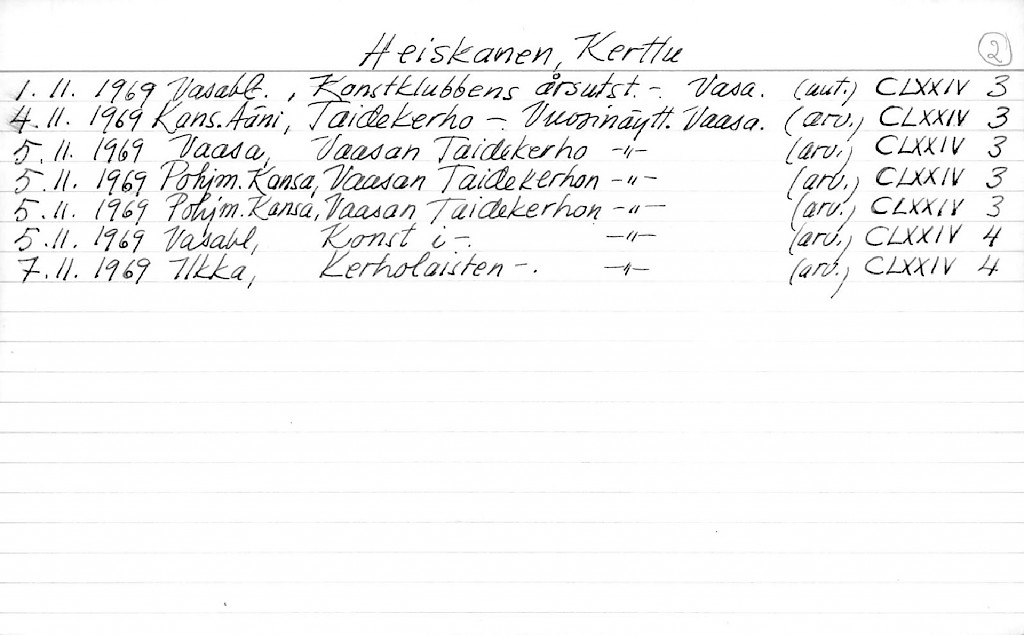 Heiskanen, Kerttu 2
1. 11. 1969 Vasabl. , Konstklubbens årsutst. -. Vasa. (uut.) CLXXIV 3
4. 11. 1969 Kans. Ääni, Taidekerho - Vuosinäytt. Vaasa. (arv.) CLXXIV 3
5. 11. 1969 Vaasa, Vaasan Taidekerho -"- (arv.) CLXXIV 3
5. 11. 1969 Pohjm. Kansa, Vaasan Taidekerhon -"- (arv.) CLXXIV 3
5. 11. 1969 Pohjm. Kansa, Vaasan Taidekerhon -"- (arv.) CLXXIV 3
5. 11. 1969 Vasabl, Konst i -. -"- (arv.) CLXXIV 4
7. 11. 1969 Ilkka, Kerholaisten -. -"- (arv.) CLXXIV 4